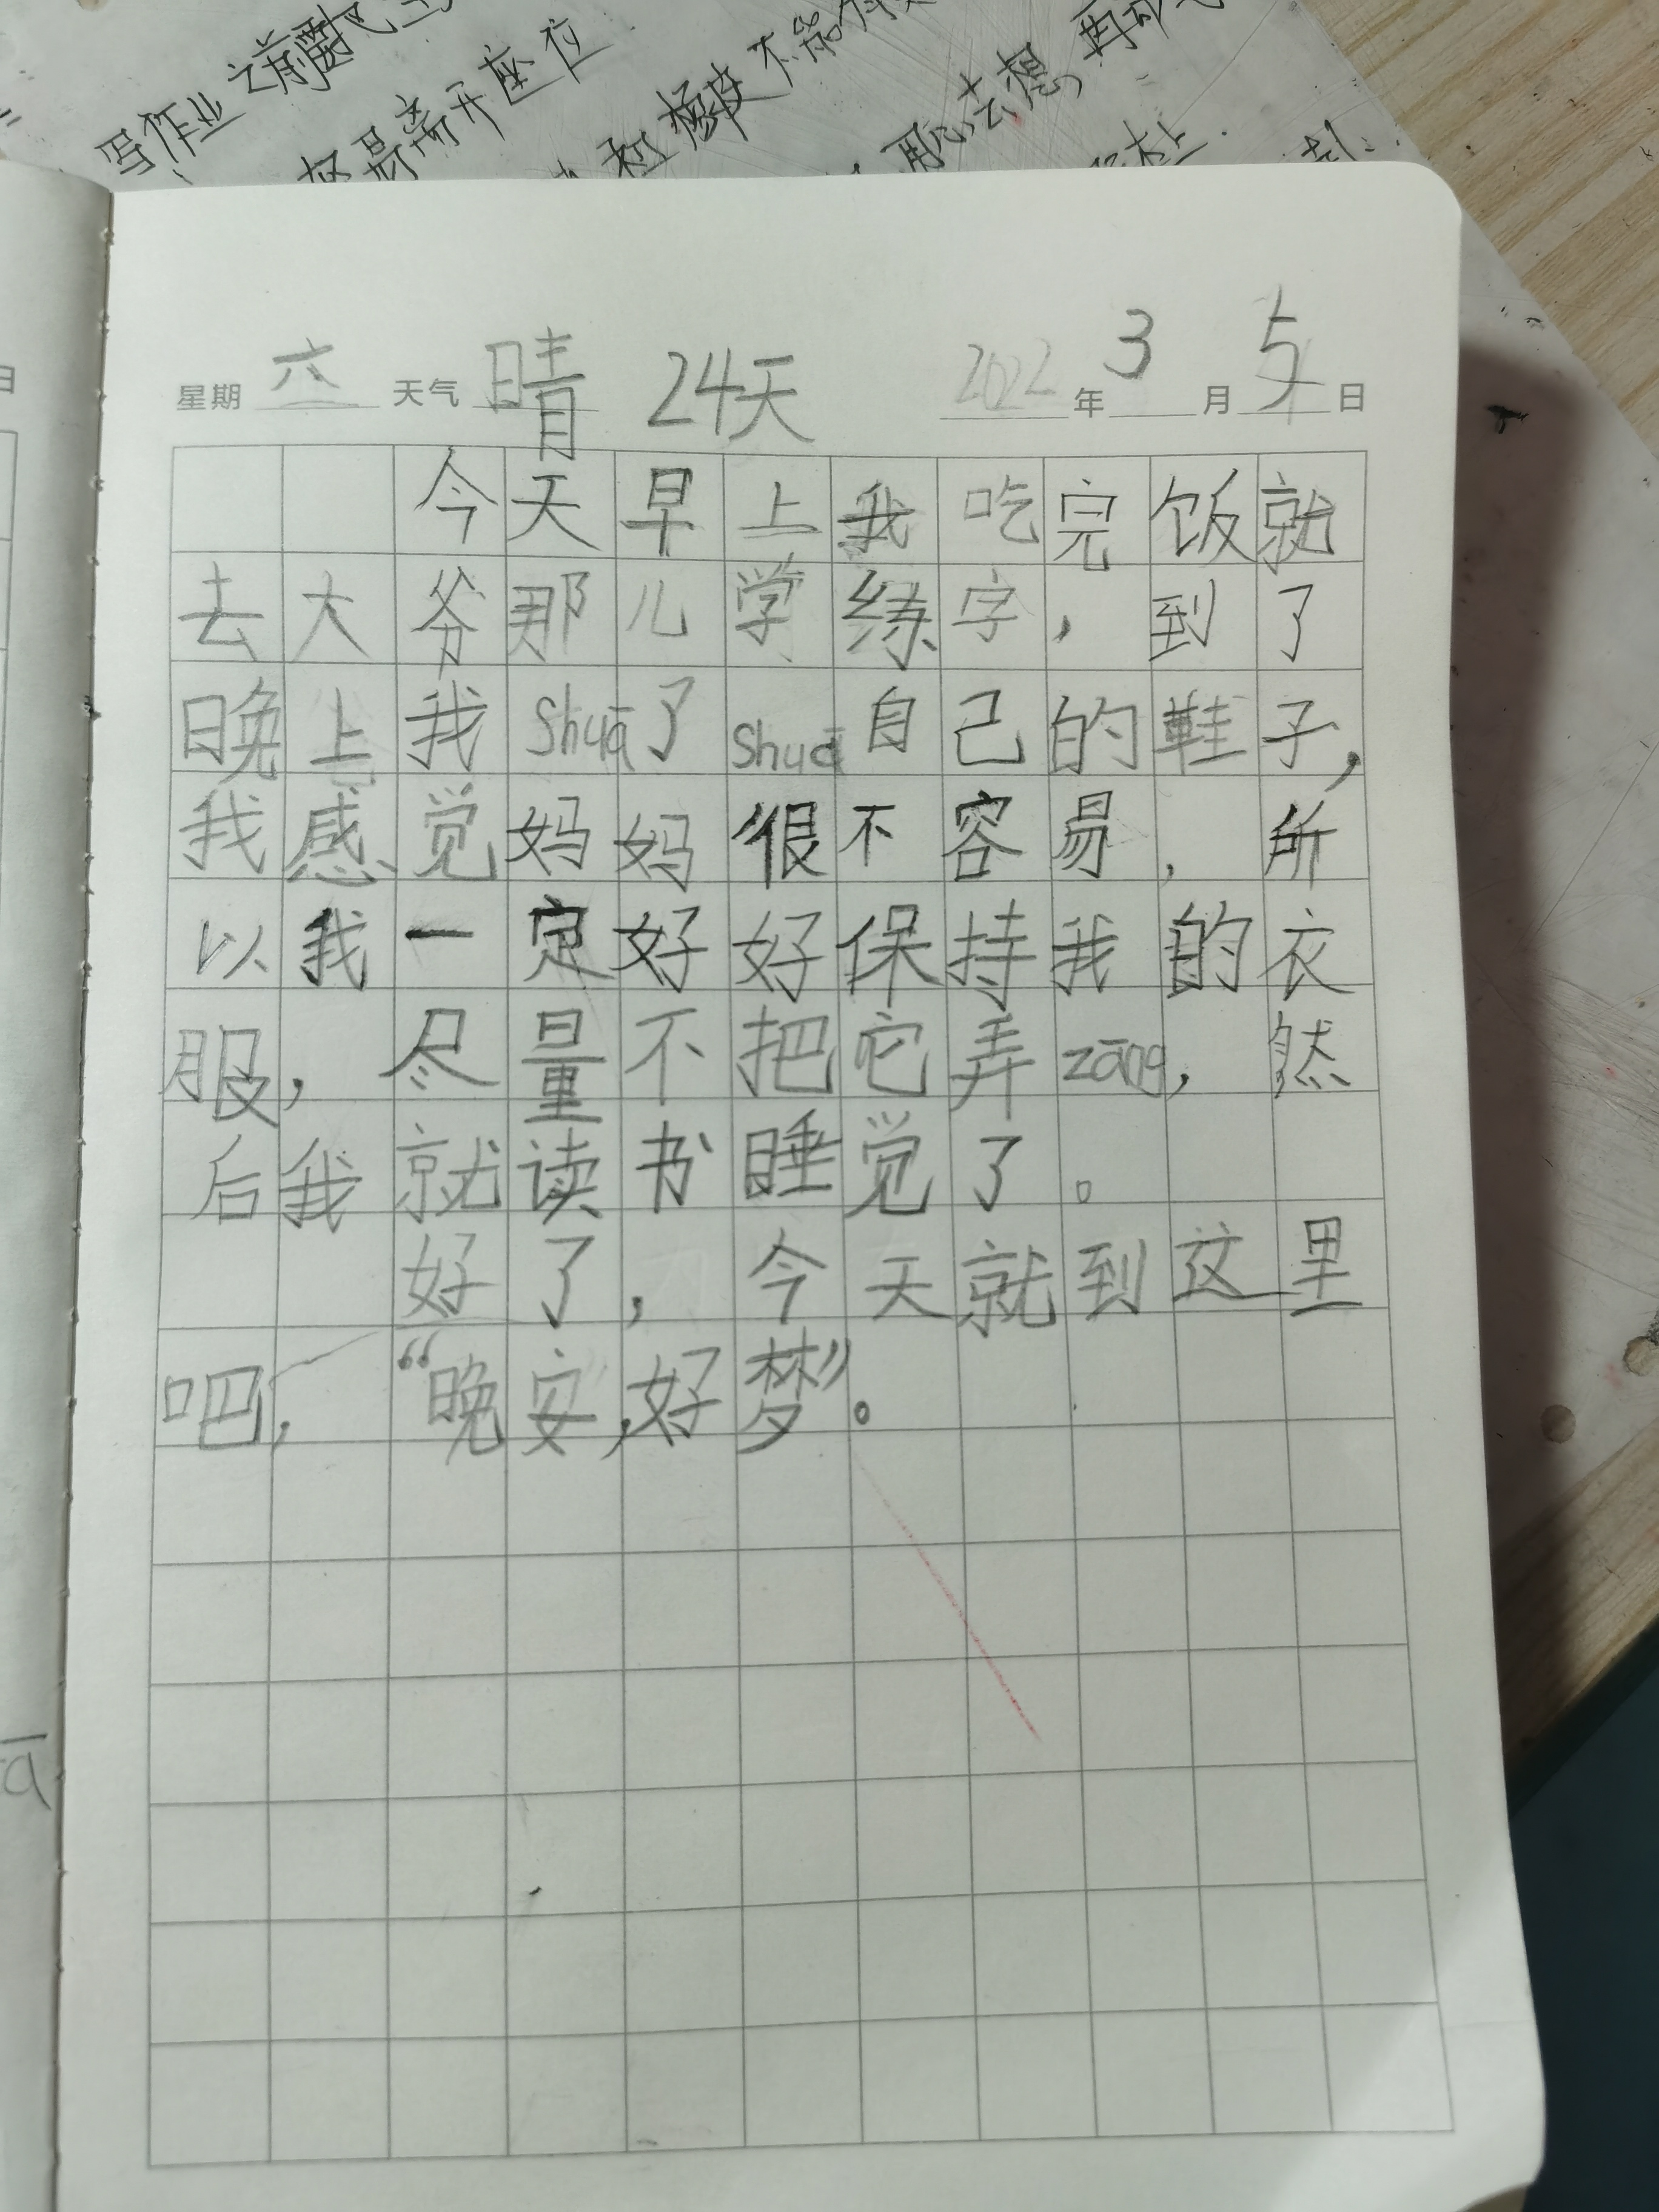 写作业之前
离开座位
橡皮不能
用心去想,再
星期 六 天气 晴 24天 2022 年 3 月 5 日
今天早上我吃完饭就
去大爷那儿学练字,到了
晚上我shuā了shuā自己的鞋子,
我感觉妈妈很不容易,所
以我一定好好保持我的衣
服,尽量不把它弄zāng,然
后我就读书睡觉了。
好了,今天就到这里
吧,“晚安,好梦”。